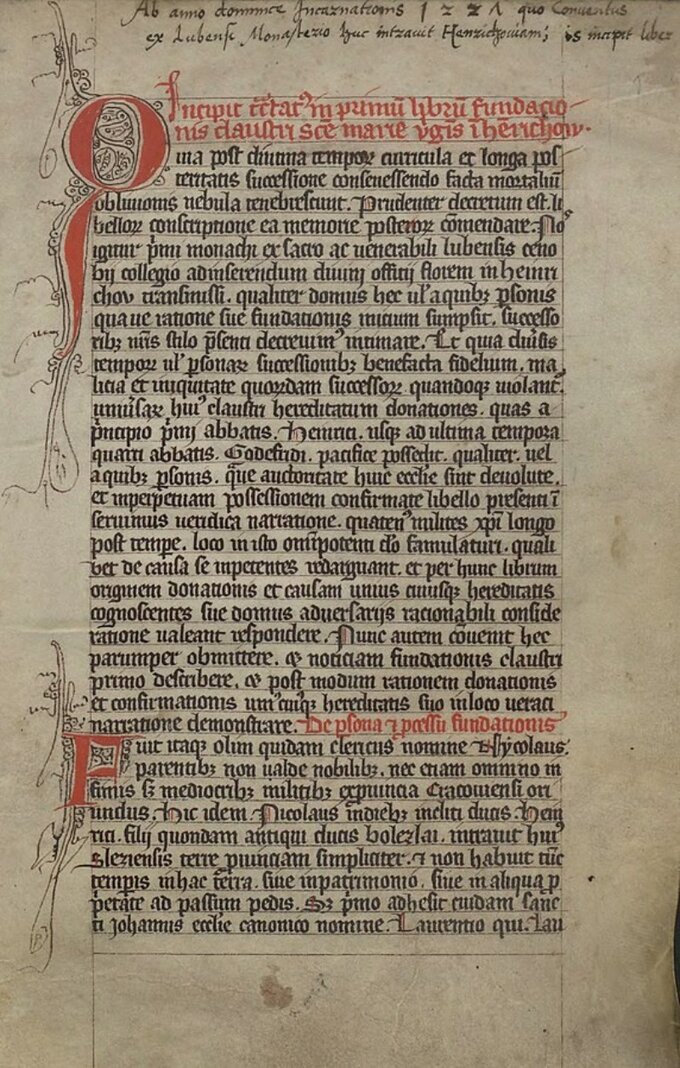 Ab anno dominice Incarnationis 1221 quo Conventus
ex Lubensi Monasterio huc intravit Henrichoviam; is incipit liber
Incipit tᷓctat9 in primū librū fundacio-
nis claustri Sce marie vgis ī heīrichow.
Quia post diutina tempoꝝ curricula et longa pos
teritatis successione consenessendo facta mortaliū
oblivionis nebula tenebrescunt. Prudenter decretum est. li
belloꝝ conscriptione ea memorie posteroꝝ cōmendare. No
igitur p̄mi monachi ex sacro ac venerabili lubensis ceno
bii collegio ad inserendum divini officii florem in heinri
chov transmissi. qualiter domus hec ul' a quibꝫ ꝑsonis
qua ve ratione sue fundationis initium sumpsit. successo
ribꝫ nr̄is stilo p̄senti decrevim9 intimare. Et quia div'sis
tempoꝝ ul' ꝑsonaꝝ successionibꝫ benefacta fidelium. ma
licia et iniquitate quorundam successoꝝ quandoqꝫ violant'.
univ'saꝝ hui9 claustri hereditatum donationes. quas a
p̄ncipio p̄mi abbatis. Heinrici. usqꝫ ad ultima tempora
quarti abbatis. Godefridi. pacifice possedit. qualiter. vel
a quibꝫ ꝑsonis. que auctoritate huic eccl'ie sint devolute.
et in perpetuam possessionem confirmate libello presenti ī
seruimus veridica narratione. quaten9 milites xp̄i longo
post tempe. loco in isto om̄ipotenti d'o famulaturi. quali
bet de causa se inpetentes redarguant. et per hunc librum
originem donationis et causam unius cuiusqꝫ hereditatis
cognoscentes sue domus adversariis racionabili conside
ratione valeant respondere. Nunc autem cōvenit hec
parumper obmittere. et noticiam fundationis claustri
primo describere. et post modum rationem donationis
et confirmationis uni9cuiqꝫ hereditatis suo in loco veraci
narratione demonstrare. De ꝑsona ⁊ ꝓcessu fundationis
Fuit itaqꝫ olim quidam clericus nomine Nycolaus.
parentibꝫ non valde nobilibꝫ. nec etiam omnino in
fimis sꝫ mediocribꝫ militibꝫ ex ꝓvincia Cracoviensi ori
undus. Hic idem Nicolaus in diebꝫ incliti ducis. Hein
rici. filii quondam antiqui ducis bolezlai. intravit hui9
sleziensis terre ꝓvinciam simpliciter. ⁊ non habuit tūc
tempis in hac terra. sive in patrimonio. sive in aliqua ꝓ
p̄etate ad passum pedis. Sꝫ p̄mo adhesit cuidam sanc
ti Johannis eccl'ie canonico nomine. Laurentio qui. Lau